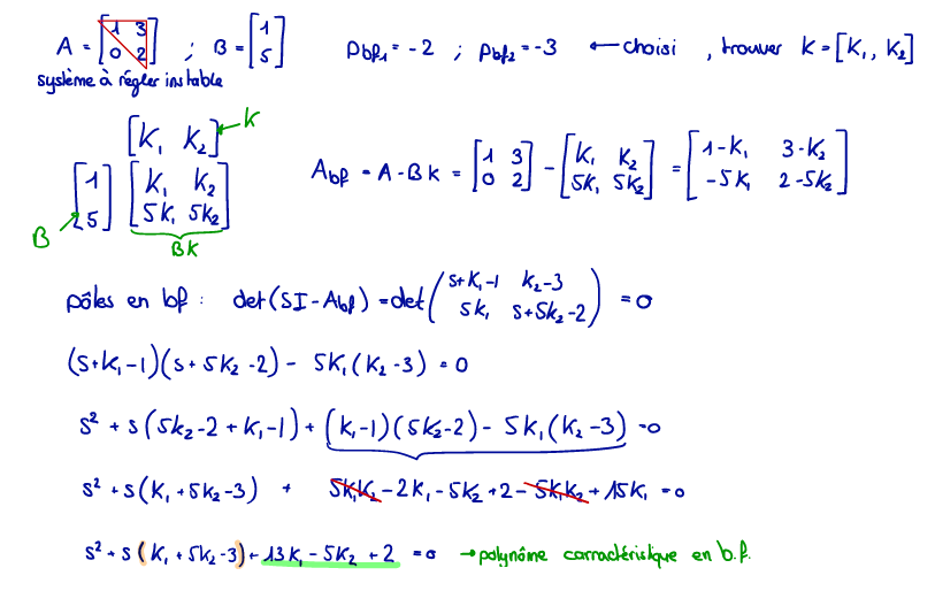 A = [1 3 ; 0 2] ; B = [1 ; 5] Pbf₁ = -2 ; Pbf₂ = -3 ← choisi , trouver K = [K₁, K₂]
système à régler instable
[K₁ K₂] ← K
[1 ; 5] [K₁ K₂ ; 5K₁ 5K₂] Abf = A - BK = [1 3 ; 0 2] - [K₁ K₂ ; 5K₁ 5K₂] = [1-K₁ 3-K₂ ; -5K₁ 2-5K₂]
B BK
pôles en bf : det(SI - Abf) = det(s+K₁-1 K₂-3 ; 5K₁ s+5K₂-2) = 0
(s+K₁-1)(s+5K₂-2) - 5K₁(K₂-3) = 0
s² + s(5K₂-2+K₁-1) + (K₁-1)(5K₂-2) - 5K₁(K₂-3) = 0
s² + s(K₁+5K₂-3) + 5K₁K₂ - 2K₁ - 5K₂ + 2 - 5K₁K₂ + 15K₁ = 0
s² + s(K₁+5K₂-3) + 13K₁ - 5K₂ + 2 = 0 → polynôme carractéristique en b.f.